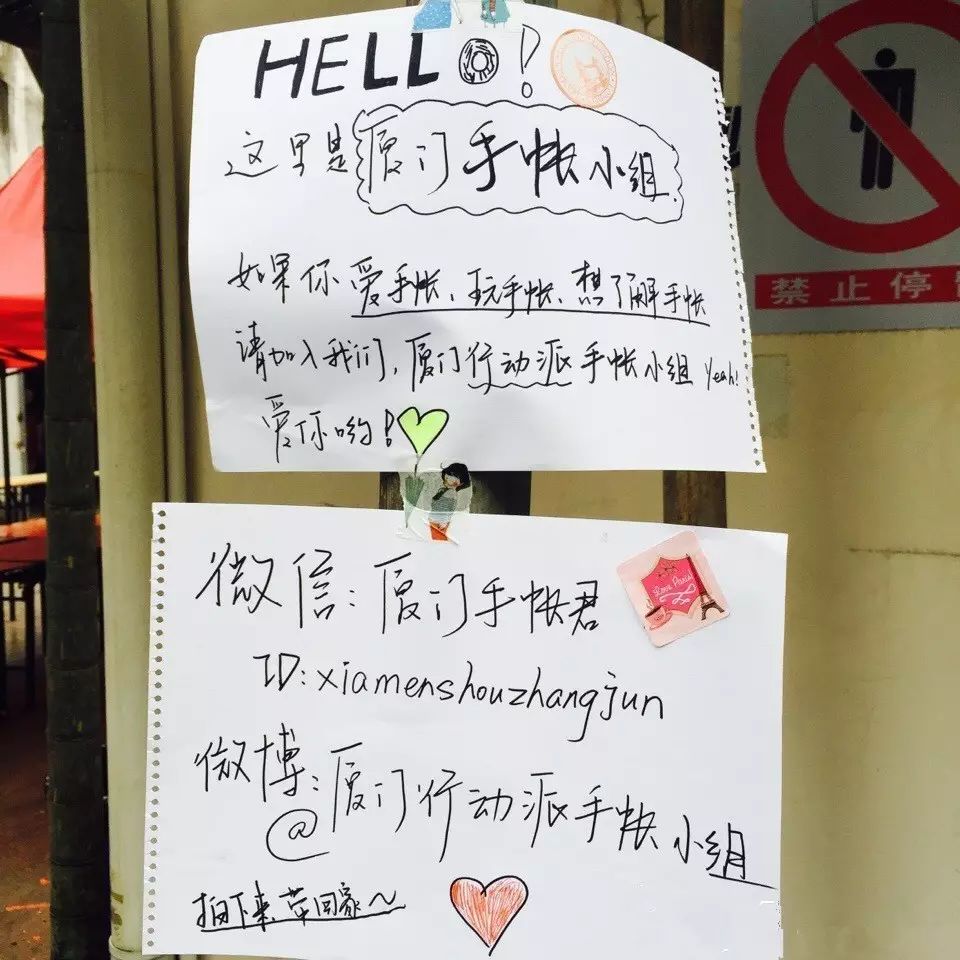 HELLO!
这里是厦门手帐小组
如果你爱手帐、玩手帐、想了解手帐
请加入我们,厦门行动派手帐小组 Yeah!
爱你哟!
禁止停
微信:厦门手帐君
Love Paris
ID:xiamenshouzhangjun
微博:
@厦门行动派手帐小组
拍下来,带回家~